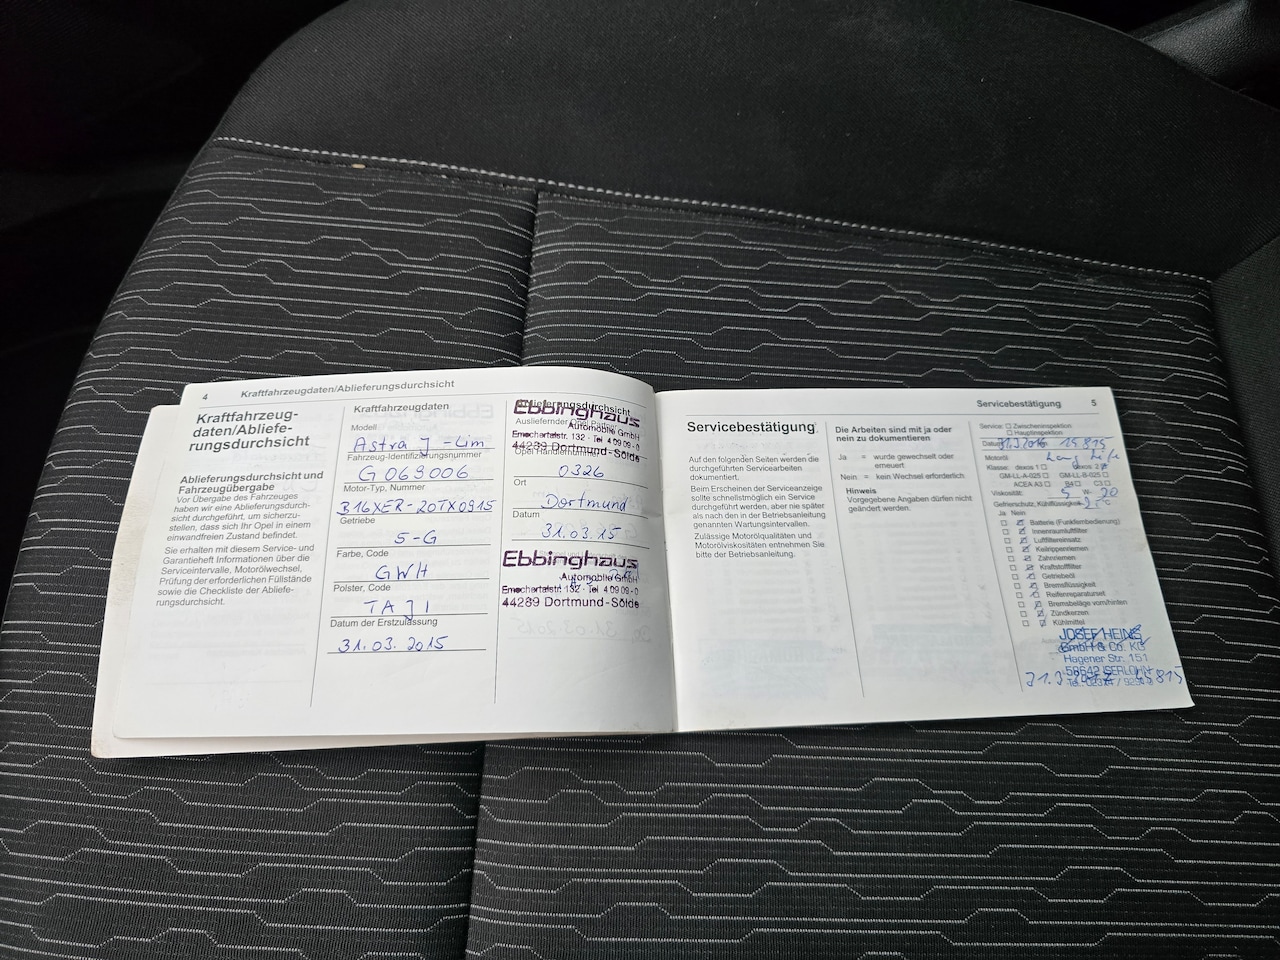 4 Kraftfahrzeugdaten/Ablieferungsdurchsicht
Kraftfahrzeug-
daten/Abliefe-
rungsdurchsicht
Ablieferungsdurchsicht und
Fahrzeugübergabe
Vor Übergabe des Fahrzeuges
haben wir eine Ablieferungsdurch-
sicht durchgeführt, um sicherzu-
stellen, dass sich Ihr Opel in einem
einwandfreien Zustand befindet.
Sie erhalten mit diesem Service- und
Garantieheft Informationen über die
Serviceintervalle, Motorölwechsel,
Prüfung der erforderlichen Füllstände
sowie die Checkliste der Abliefe-
rungsdurchsicht.
Kraftfahrzeugdaten
Modell
Astra J - Lim
Fahrzeug-Identifizierungsnummer
G 069006
Motor-Typ, Nummer
B16XER-20TX0915
Getriebe
5-G
Farbe, Code
GWH
Polster, Code
TAJI
Datum der Erstzulassung
31.03.2015
Ablieferungsdurchsicht
Ebbinghaus
Ausliefernder Opel Partner
Automobile GmbH
Emschertalstr. 132 · Tel 4 09 09-0
44289 Dortmund-Sölde
Opel Händlernummer
0326
Ort
Dortmund
Datum
31.03.15
Ebbinghaus
Automobile GmbH
Emschertalstr. 132 · Tel 4 09 09-0
44289 Dortmund-Sölde
Servicebestätigung 5
Servicebestätigung
Auf den folgenden Seiten werden die
durchgeführten Servicearbeiten
dokumentiert.
Beim Erscheinen der Serviceanzeige
sollte schnellstmöglich ein Service
durchgeführt werden, aber nie später
als nach den in der Betriebsanleitung
genannten Wartungsintervallen.
Zulässige Motorölqualitäten und
Motorölviskositäten entnehmen Sie
bitte der Betriebsanleitung.
Die Arbeiten sind mit ja oder
nein zu dokumentieren
Ja = wurde gewechselt oder
erneuert
Nein = kein Wechsel erforderlich
Hinweis
Vorgegebene Angaben dürfen nicht
geändert werden.
Service: Zwischeninspektion
Hauptinspektion
Datum 2016 15 815
Motoröl: Long Life
Klasse: dexos 1 dexos 2
GM-LL-A-025 GM-LL-B-025
ACEA A3 B4 C3
Viskosität: 5 W- 20
Gefrierschutz, Kühlflüssigkeit
Ja Nein
Batterie (Funkfernbedienung)
Innenraumluftfilter
Luftfiltereinsatz
Keilrippenriemen
Zahnriemen
Kraftstofffilter
Getriebeöl
Bremsflüssigkeit
Reifenreparaturset
Bremsbeläge vorn/hinten
Zündkerzen
Kühlmittel
JOSEF HEINS
GmbH & Co. KG
Hagener Str. 151
58642 ISERLOHN